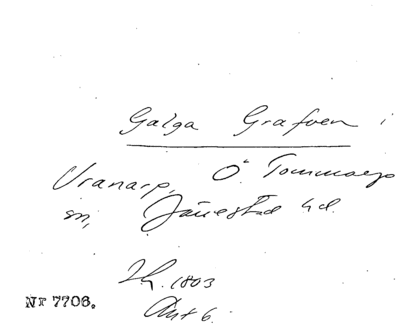 Galga Grafven i
Vranarp, Ö Tommarps
sn, Järrestad hd.
1803
Akt 6.
Nr 7706.